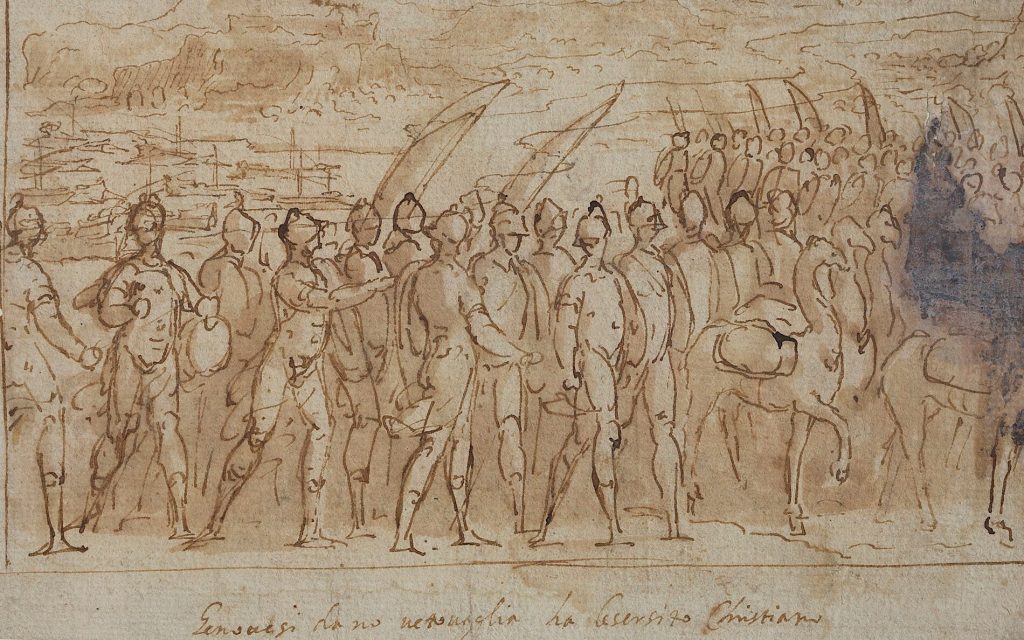 Genovesi da no vetovaglia ha lesersito Christiano